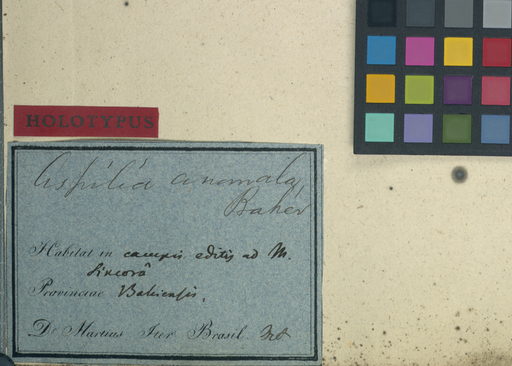 HOLOTYPUS
Aspilia anomala,
Baker
Habitat in campis editis ad M.
Sincorá
Provinciae Bahiensis.
Dr Martius Iter Brasil